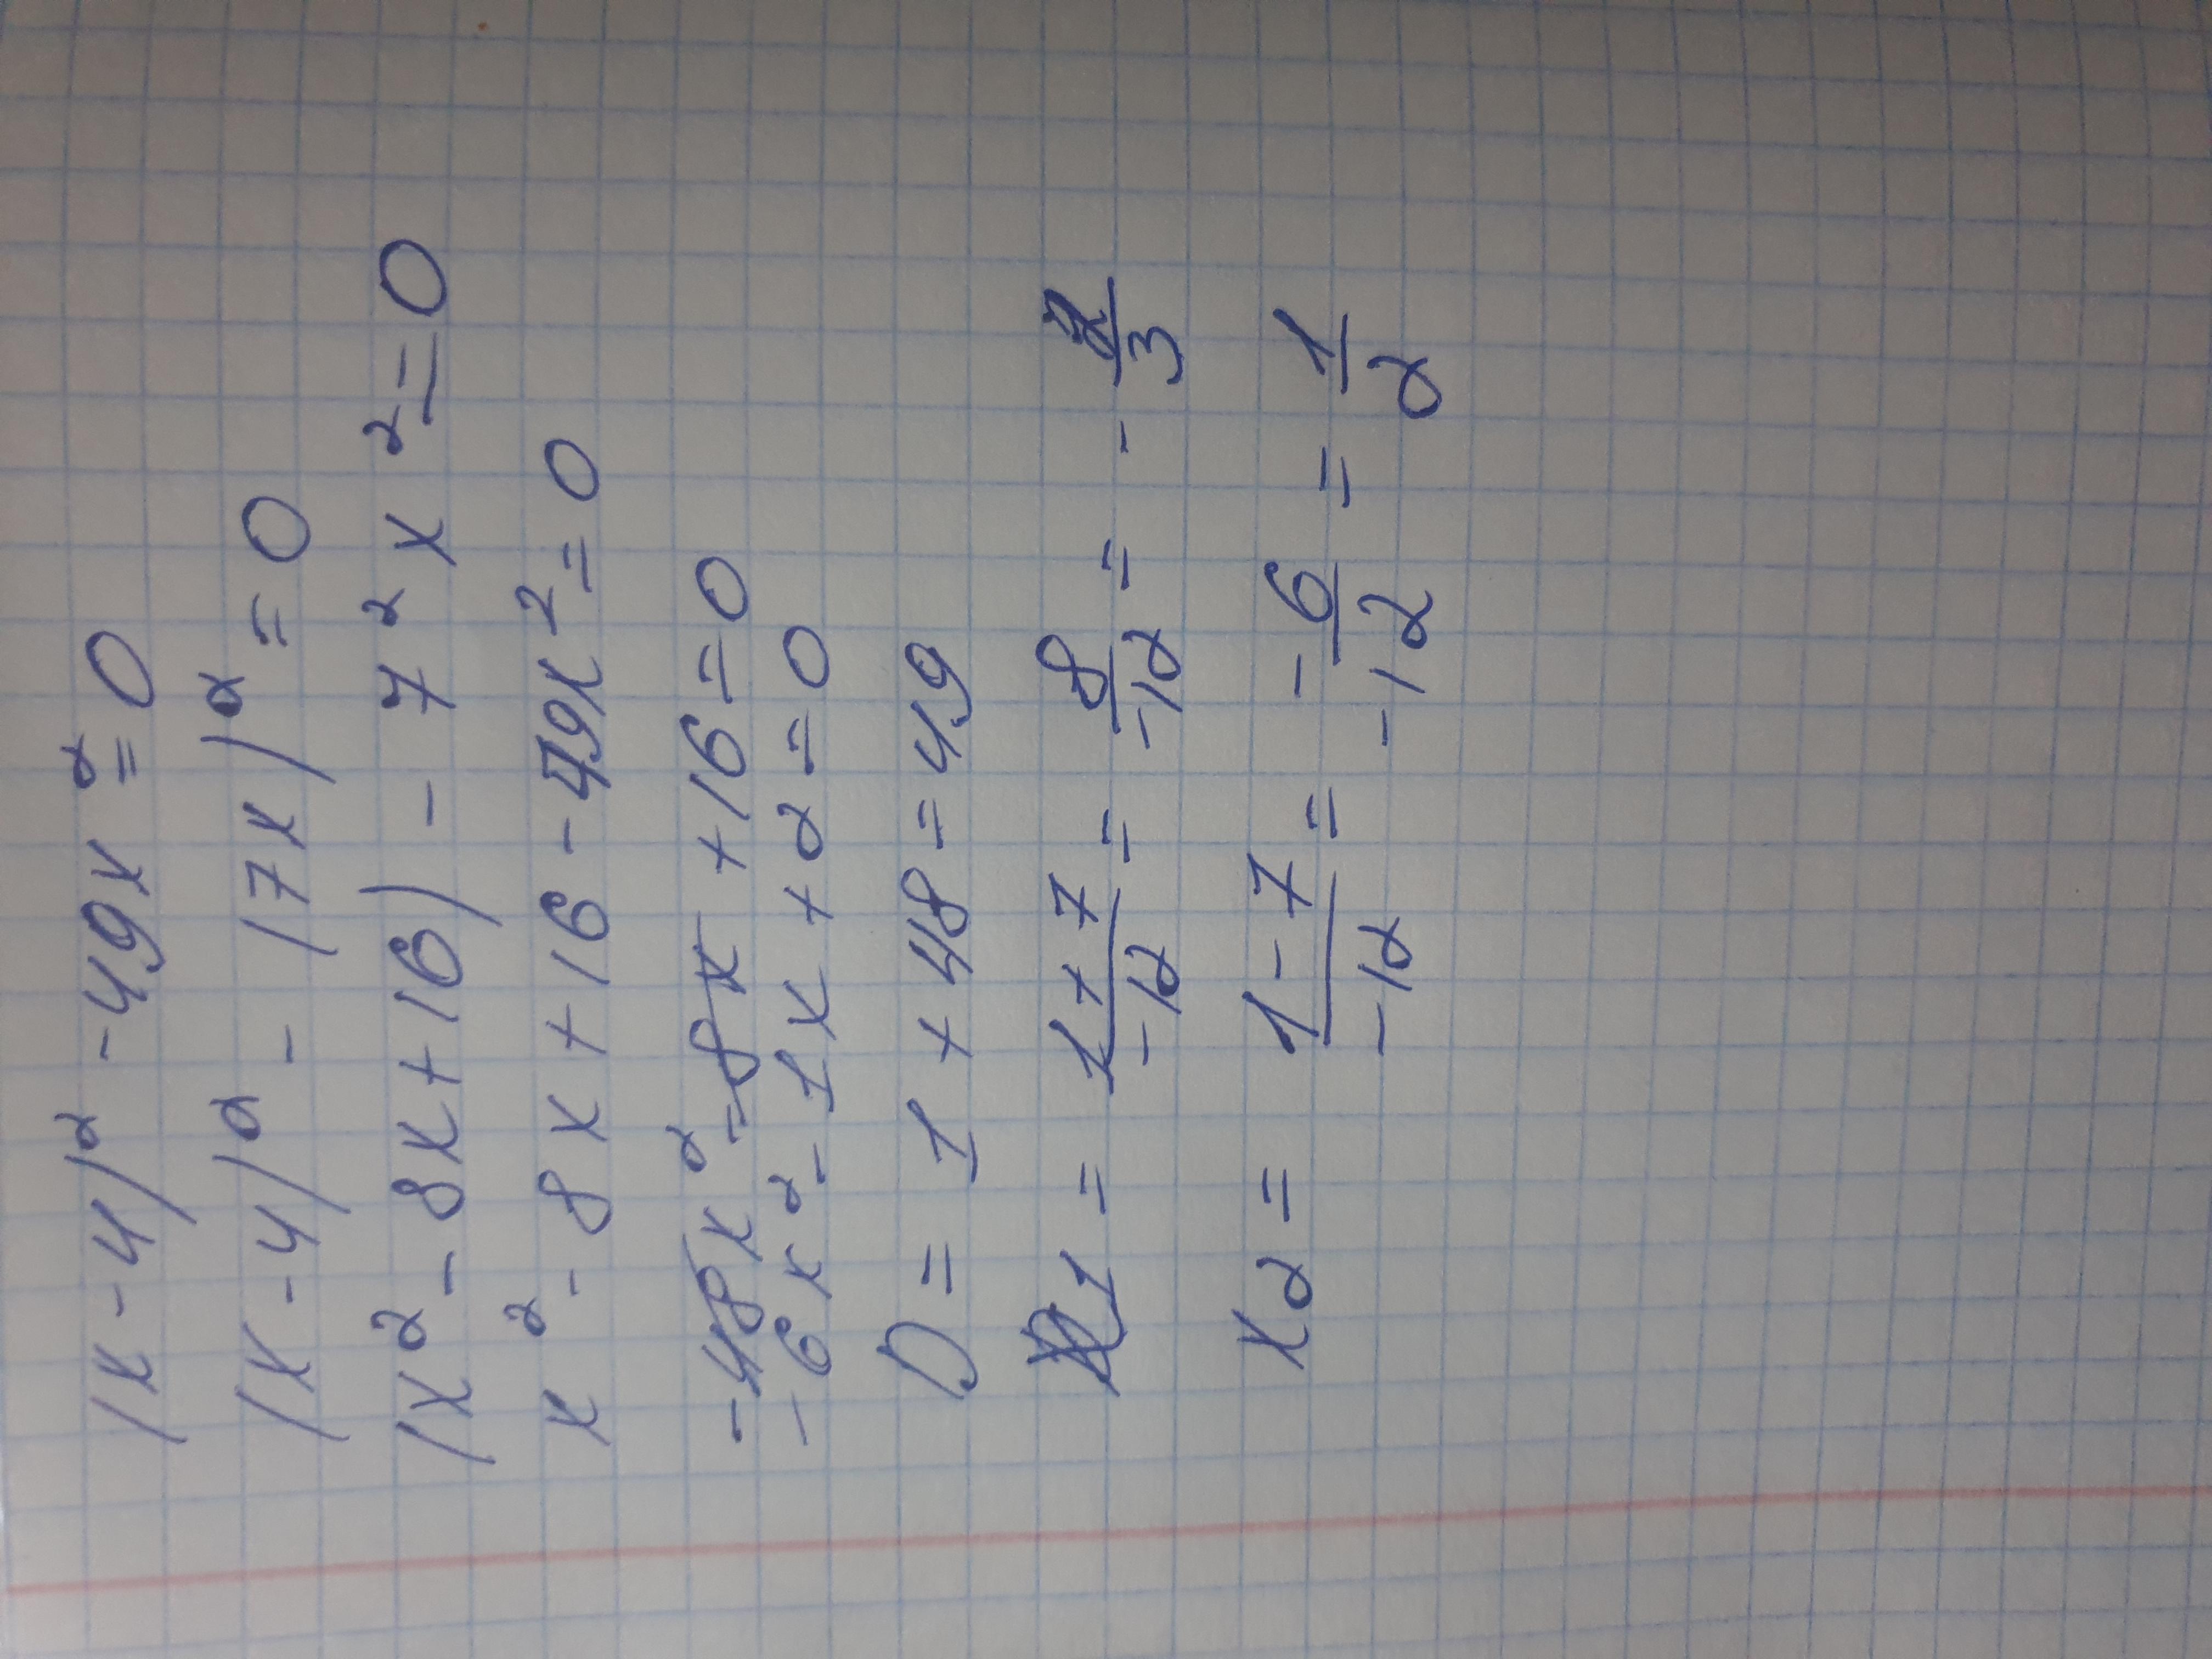 (x-4)² -49x²=0
(x-4)² - (7x)²=0
(x²-8x+16) - 7²x²=0
x²-8x+16-49x²=0
-48x²-8x+16=0
-6x²-1x+2=0
D= 1+48=49
x1 = 1+7/-12 = 8/-12 = - 2/3
x2 = 1-7/-12 = -6/-12 = 1/2